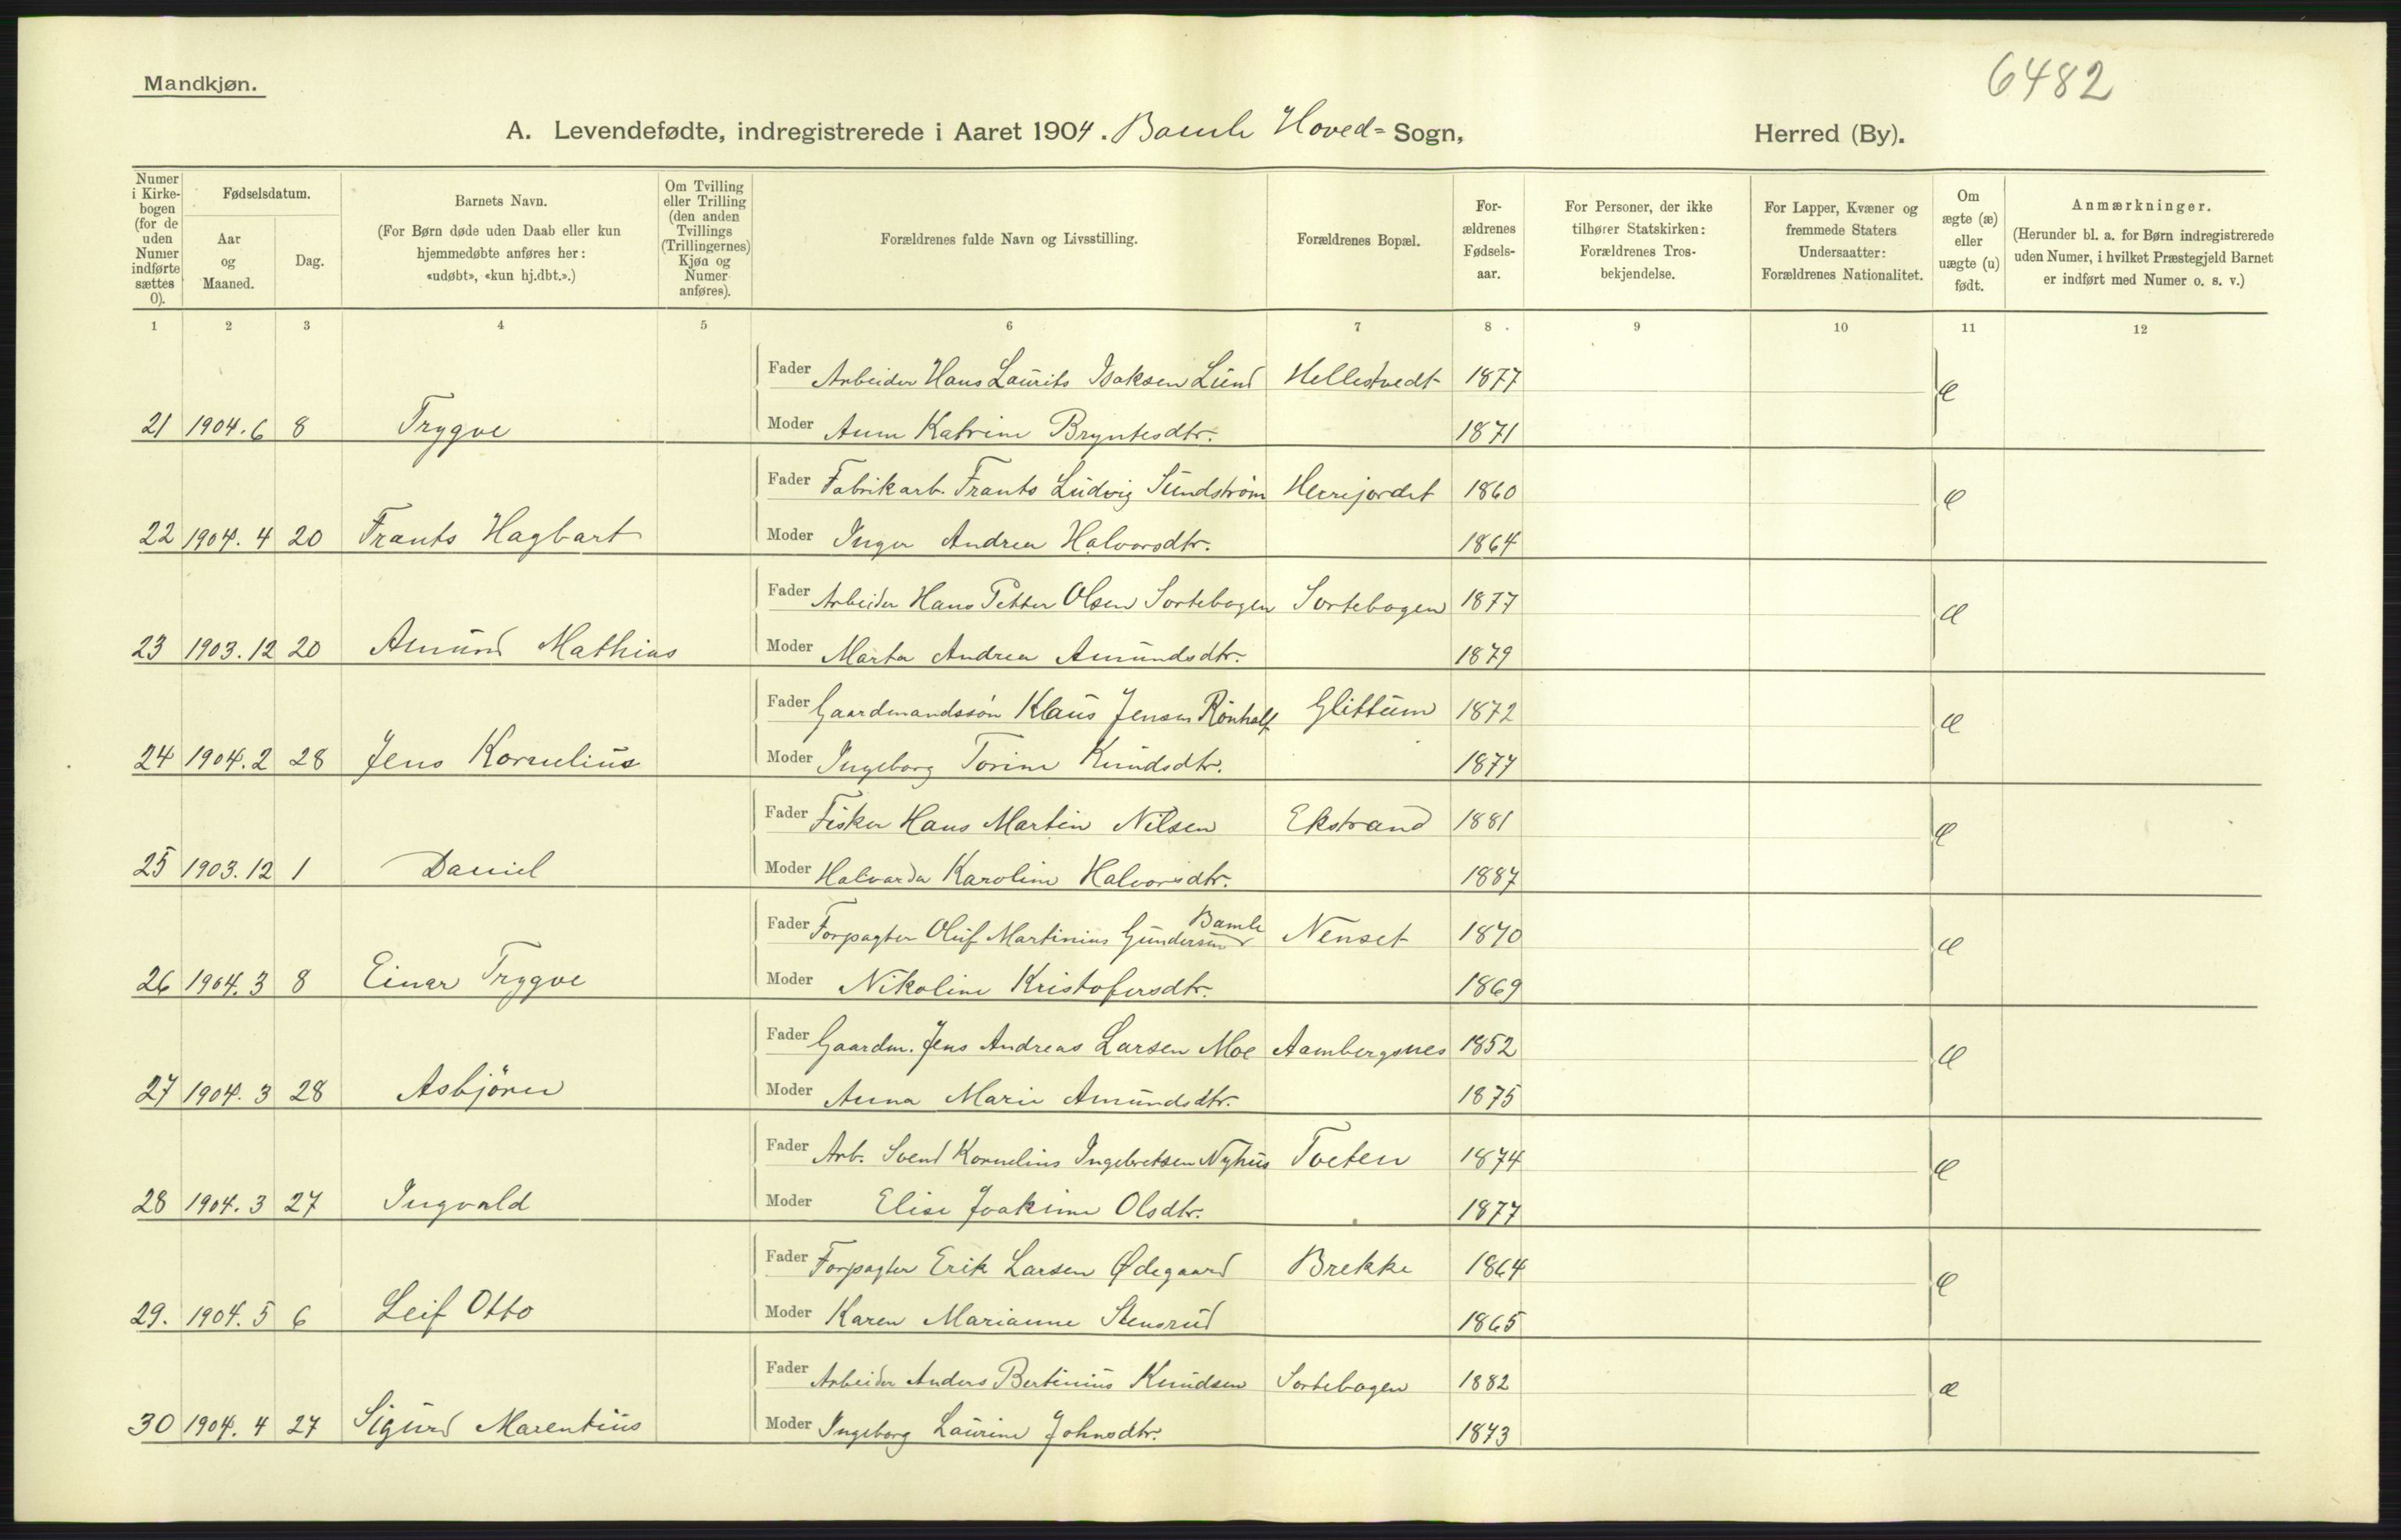 6482
Mandkjøn.
A. Levendefødte, indregistrerede i Aaret 1904. Bamle Hoved= Sogn, Herred (By).
Numer i Kirke-bogen (for de uden Numer indførte sættes 0).
Fødselsdatum.
Aar og Maaned.
Dag.
Barnets Navn.
(For Børn døde uden Daab eller kun hjemmedøbte anføres her: «udøbt», «kun hj.dbt.».)
Om Tvilling eller Trilling (den anden Tvillings (Trillingernes) Kjøn og Numer anføres).
Forældrenes fulde Navn og Livsstilling.
Forældrenes Bopæl.
For-ældrenes Fødsels-aar.
For Personer, der ikke tilhører Statskirken: Forældrenes Tros-bekjendelse.
For Lapper, Kvæner og fremmede Staters Undersaatter: Forældrenes Nationalitet.
Om ægte (æ) eller uægte (u) født.
Anmærkninger.
(Herunder bl. a. for Børn indregistrerede uden Numer, i hvilket Præstegjeld Barnet er indført med Numer o. s. v.)
1 2 3 4 5 6 7 8 9 10 11 12
Fader Arbeider Hans Laurits Isaksen Lund Hellestvedt 1877 æ
21 1904. 6 8 Trygve Moder Anne Katrine Bryntesdtr. 1871
Fader Fabrikarb. Frants Ludvig Sundstrøm Herrejordet 1860 æ
22 1904. 4 20 Frants Hagbart Moder Inger Andrea Halvorsdtr. 1864
Fader Arbeider Hans Petter Olsen Sortebogen Sortebogen 1877 æ
23 1903. 12 20 Amund Mathias Moder Marta Andrea Amundsdtr. 1879
Fader Gaardmandssøn Klaus Jensen Rönholt Glittum 1872 æ
24 1904. 2 28 Jens Kornelius Moder Ingeborg Torine Knudsdtr. 1877
Fader Fisker Hans Martin Nilsen Ekstrand 1881 æ
25 1903. 12 1 Daniel Moder Halvarda Karoline Halvorsdtr. 1887
Fader Forpagter Oluf Martinius Gundersen Bamle Nenset 1870 æ
26 1904. 3 8 Einar Trygve Moder Nikoline Kristofersdtr. 1869
Fader Gaardm. Jens Andreas Larsen Moe Aambergsnes 1852 æ
27 1904. 3 28 Asbjörn Moder Anna Marie Amundsdtr. 1875
Fader Arb. Svend Kornelius Ingebretsen Nyhus Tveten 1874 æ
28 1904. 3 27 Ingvald Moder Elise Joakime Olsdtr. 1877
Fader Forpagter Erik Larsen Ødegaard Brekke 1864 æ
29. 1904. 5 6 Leif Otto Moder Karen Marianne Stensrud 1865
Fader Arbeider Anders Bertinius Knudsen Sortebogen 1882 æ
30 1904. 4 27 Sigurd Marentius Moder Ingeborg Laurine Johnsdtr. 1873